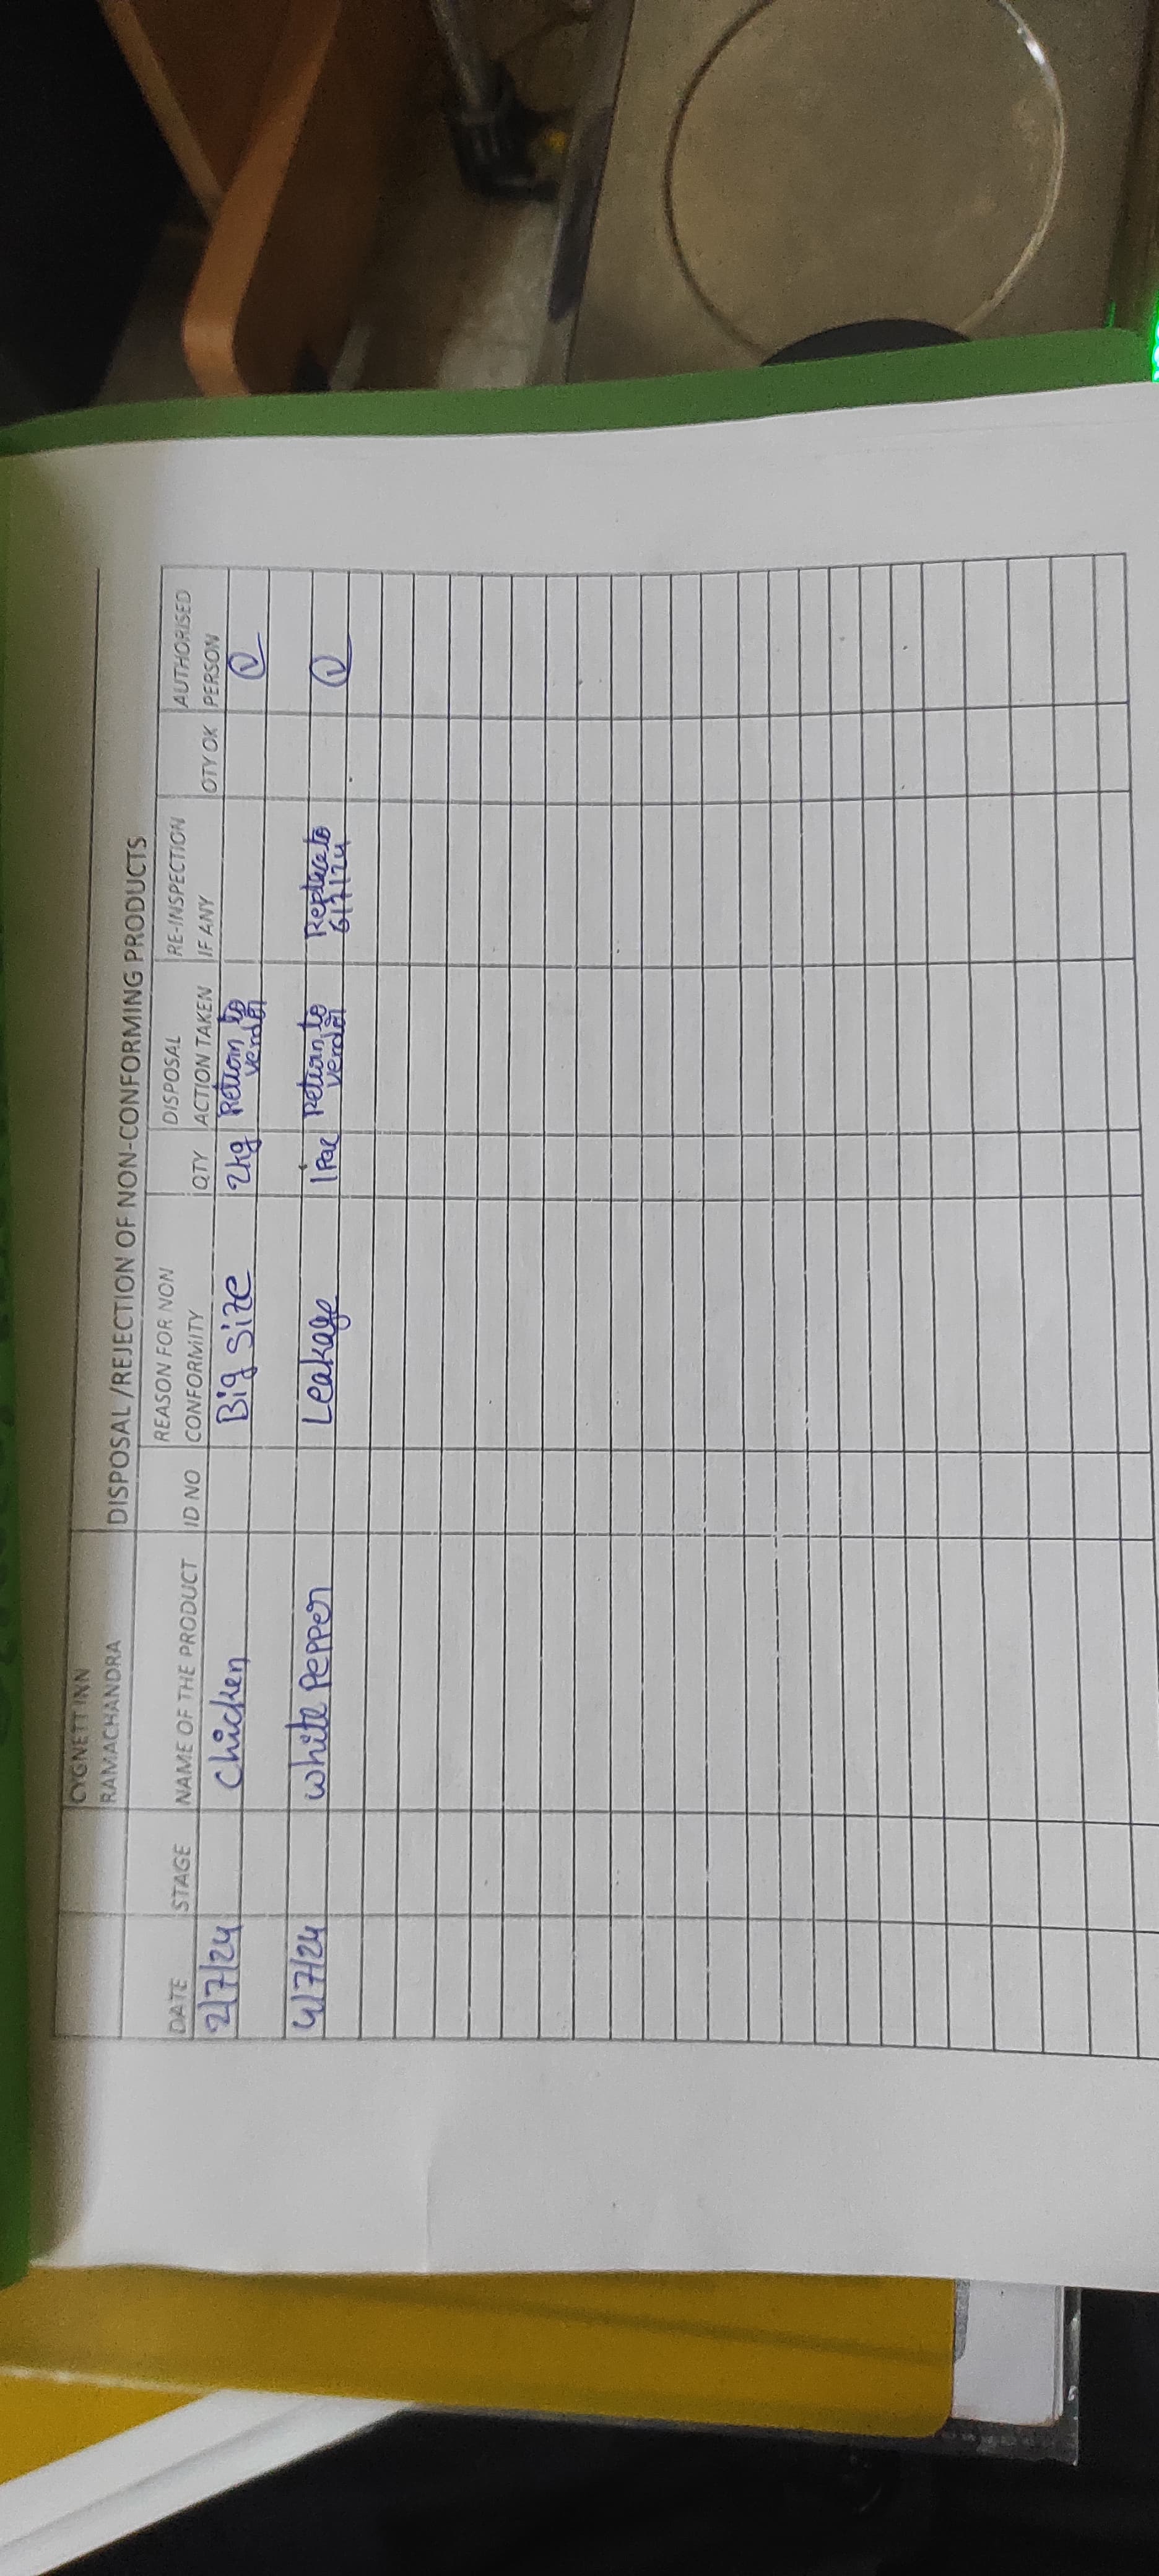 CYGNETT INN
RAMACHANDRA
DISPOSAL /REJECTION OF NON-CONFORMING PRODUCTS
DATE STAGE NAME OF THE PRODUCT ID NO REASON FOR NON CONFORMITY QTY DISPOSAL ACTION TAKEN RE-INSPECTION IF ANY QTY OK AUTHORISED PERSON
2/7/24 Chicken Big Size 2kg Return to vendor
4/7/24 White Pepper Leakage 1 Pac Return to vendor Replace to 6/7/24